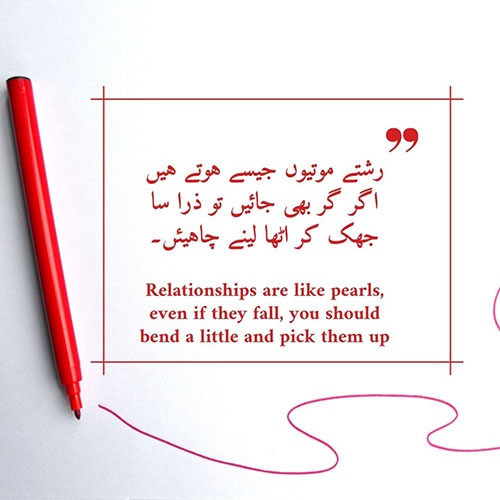 رشتے موتیوں جیسے ہوتے ہیں
اگر گر بھی جائیں تو ذرا سا
جھک کر اٹھا لینے چاہیئں۔
Relationships are like pearls,
even if they fall, you should
bend a little and pick them up